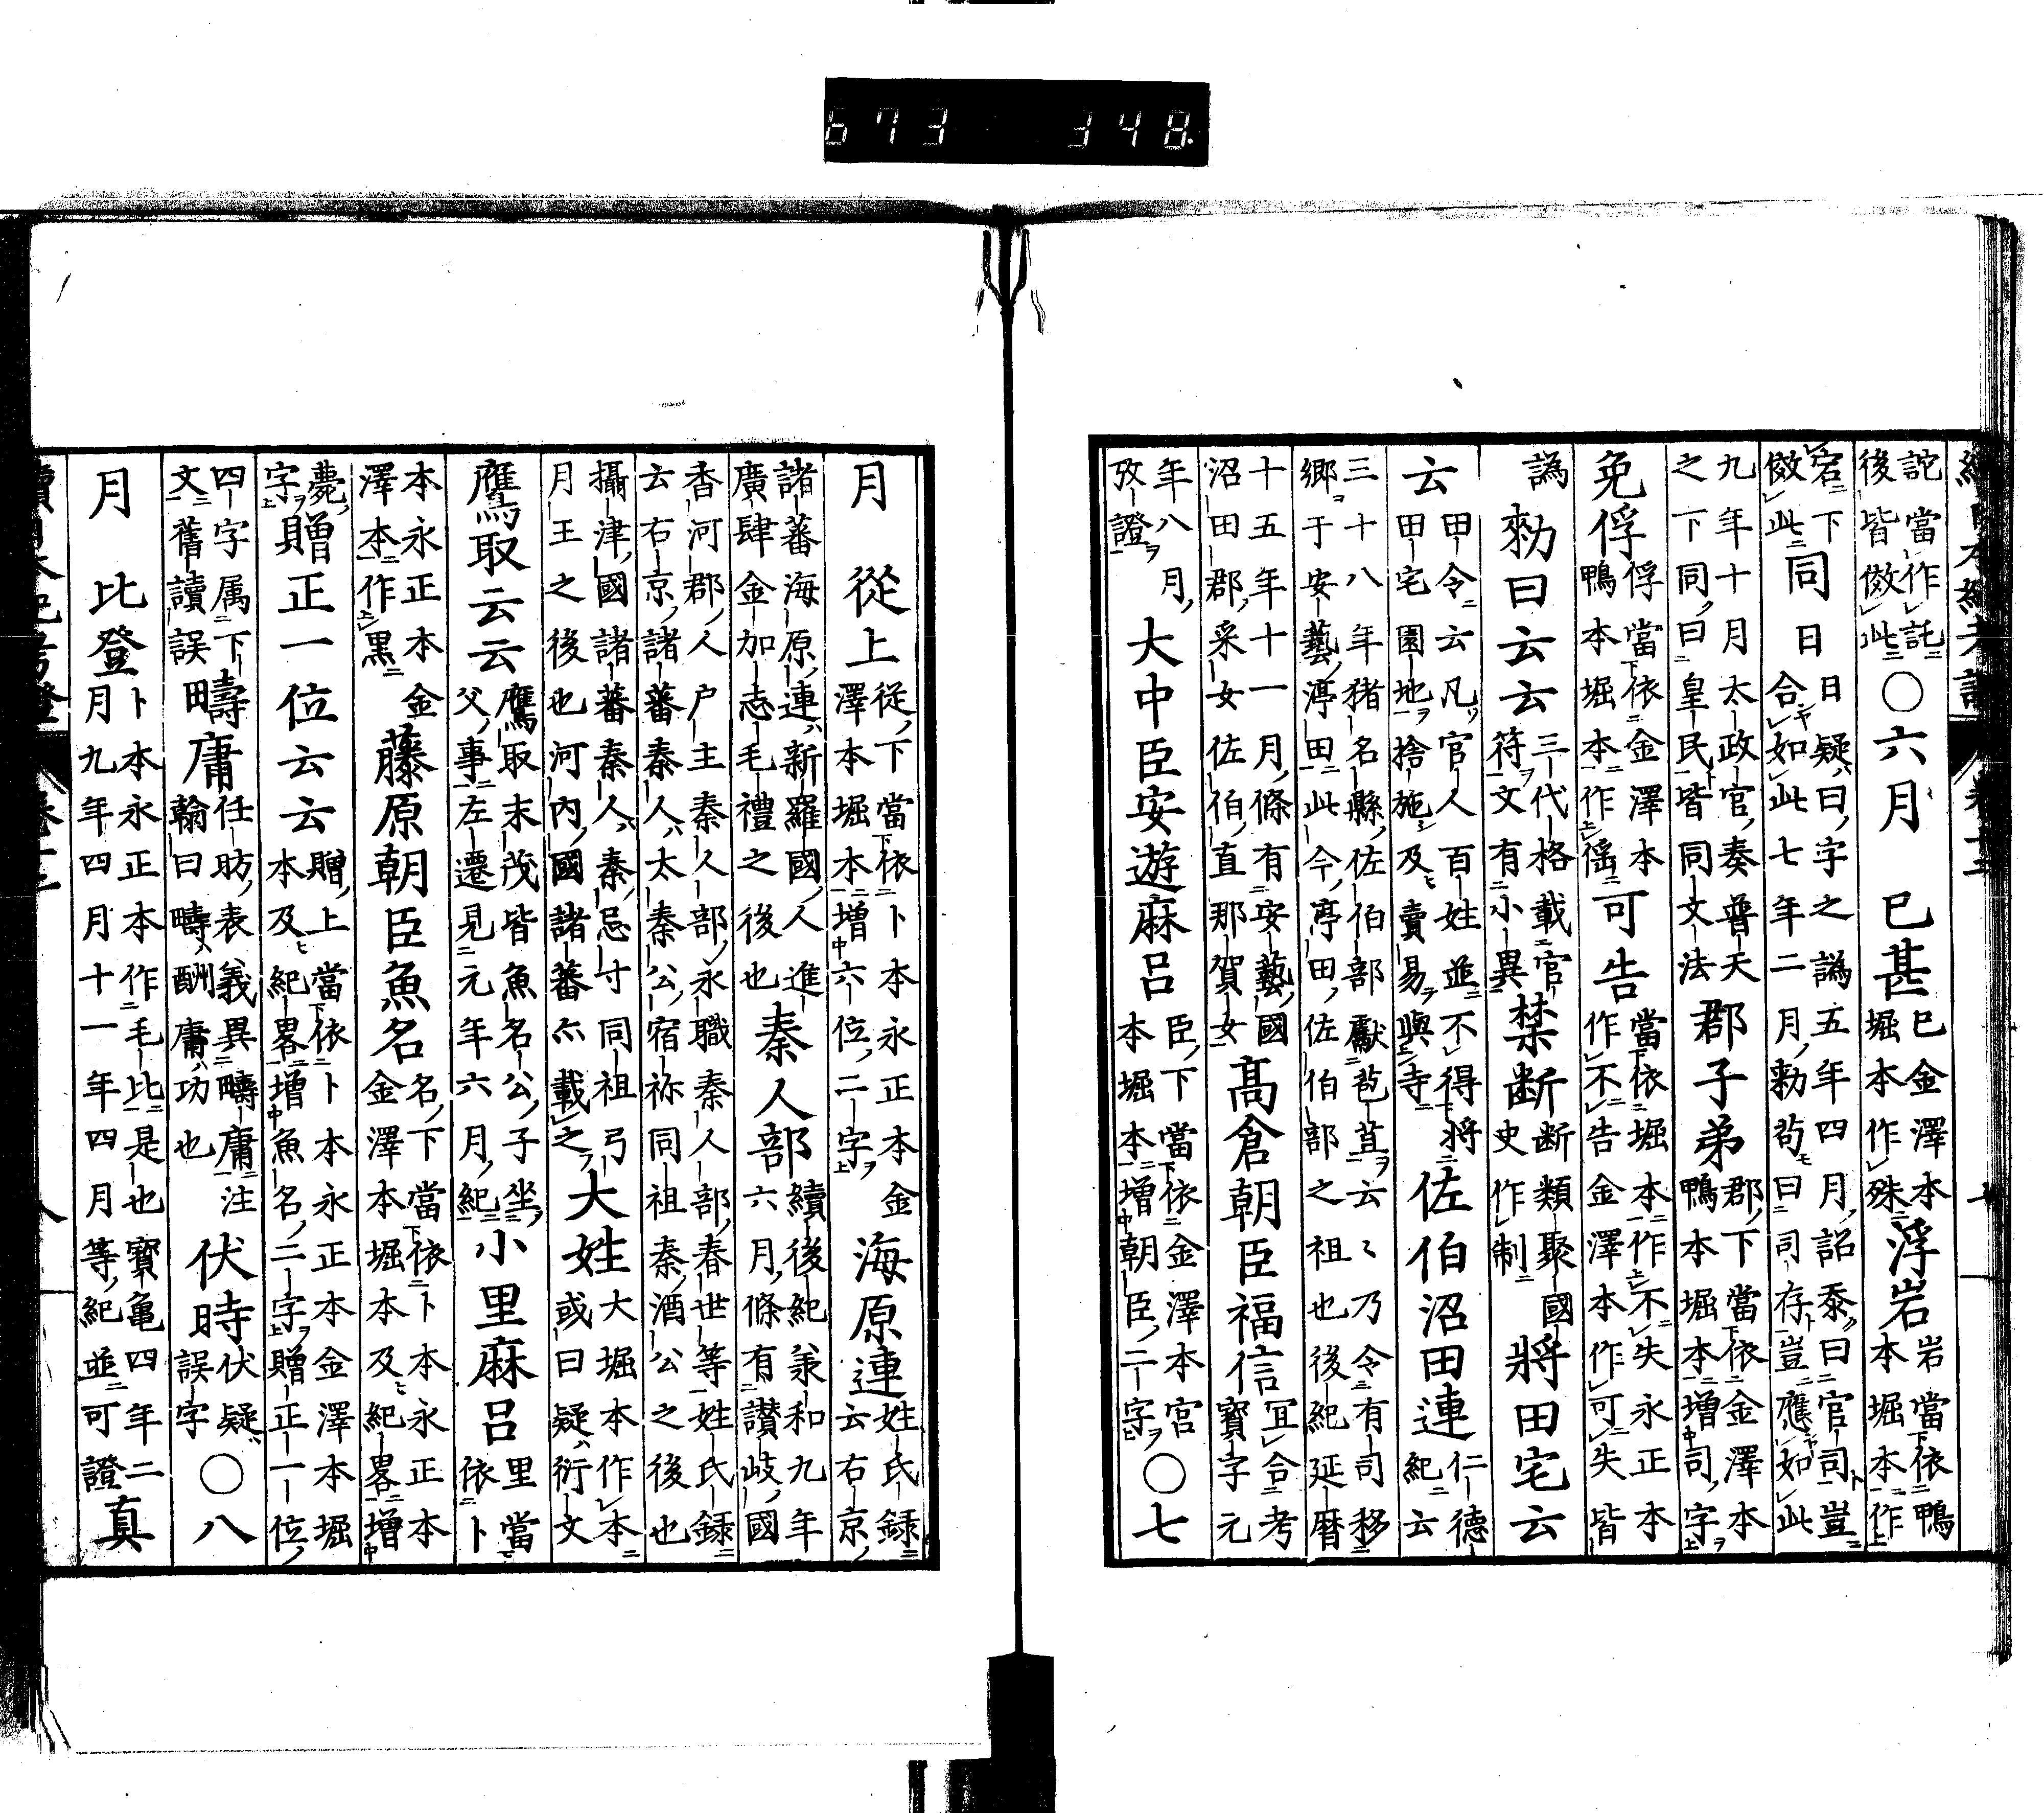 詑當作託後皆倣此○六月 已甚已金澤本堀本作殊浮岩岩當依鴨本堀本作
宕下倣此同日日疑曰字之譌五年四月詔泰曰官司豈合如此七年二月勅茍曰司存豈應如此
九年十月太政官奏普天之下同曰皇民皆同文法郡子弟郡下當依金澤本鴨本堀本增司字
免俘俘當依金澤本鴨本堀本作傜可告當依堀本作不失永正本作不告金澤本作可失皆
譌勑曰云云三代格載官符文有小異禁断断類聚國史作制將田宅云
云甲令云凡官人百姓並不得將田宅園地捨施及賣易與寺佐伯沼田連仁德紀云
三十八年猪名縣佐伯部獻苞苴云〻乃令有司移鄉于安藝渟田此今渟田佐伯部之祖也後紀延曆
十五年十一月條有安藝國沼田郡采女佐伯直那賀女高倉朝臣福信冝合考寳字元
年八月攷證大中臣安遊麻呂臣下當依金澤本宮本堀本增朝臣二字○七
月 從上從下當依卜本永正本金澤本堀本增六位二字海原連姓氏録云右京
諸蕃海原連新羅國人進廣肆金加志毛禮之後也秦人部續後紀兼和九年六月條有讃岐國
香河郡人户主秦人部永職秦人部春世等姓氏録云右京諸蕃秦人太秦公宿祢同祖秦酒公之後也
攝津國諸蕃秦人秦忌寸同祖弓月王之後也河内國諸蕃亦載之大姓大堀本作本或曰疑衍文
鷹取云云鷹取末茂皆魚名公子坐父事左遷見元年六月紀小里麻呂里當依卜
本永正本金澤本作黒藤原朝臣魚名名下當依卜本永正本金澤本堀本及紀畧增
薨字贈正一位云云贈上當依卜本永正本金澤本堀本及紀畧增魚名二字贈正一位
四字属下文舊讀誤疇庸任昉表義異疇庸注翰曰疇酬庸功也伏時伏疑誤字○八
月 比登卜本永正本作毛比是也寳亀四年二月九年四月十一年四月等紀並可證真